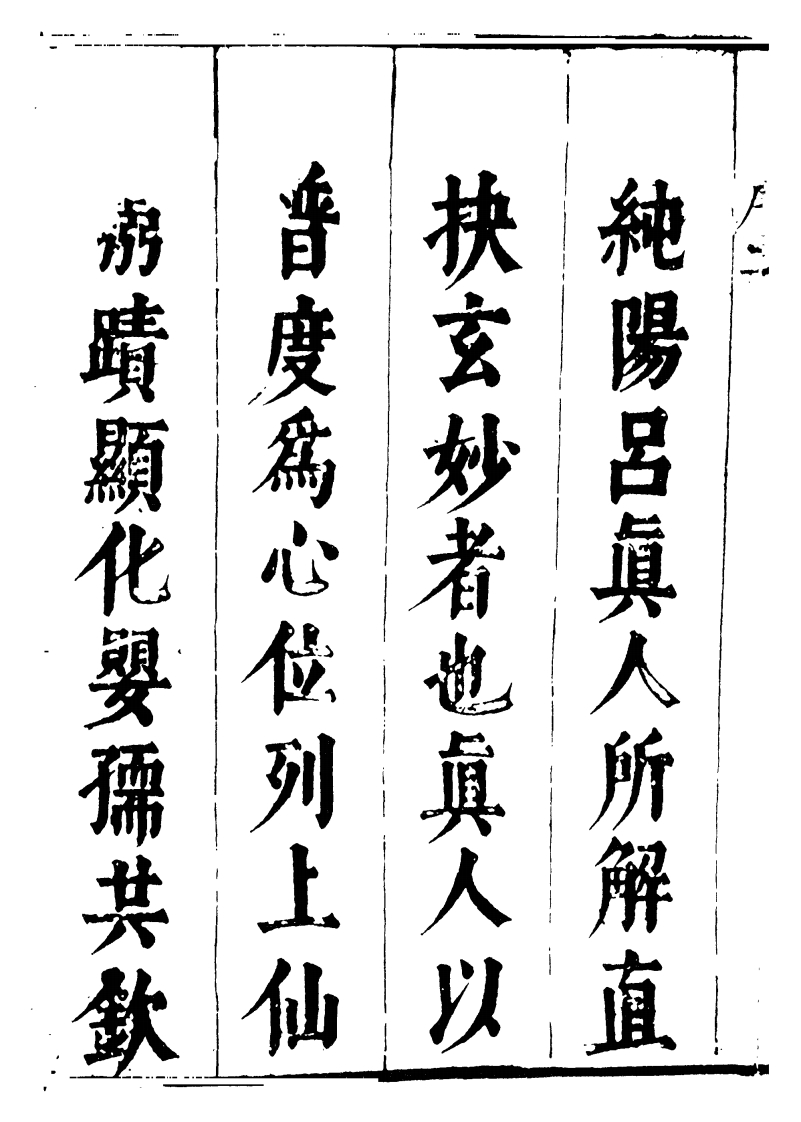 純陽呂眞人所解直
抉玄妙者也眞人以
普度爲心位列上仙
蹟顯化嬰孺共欽